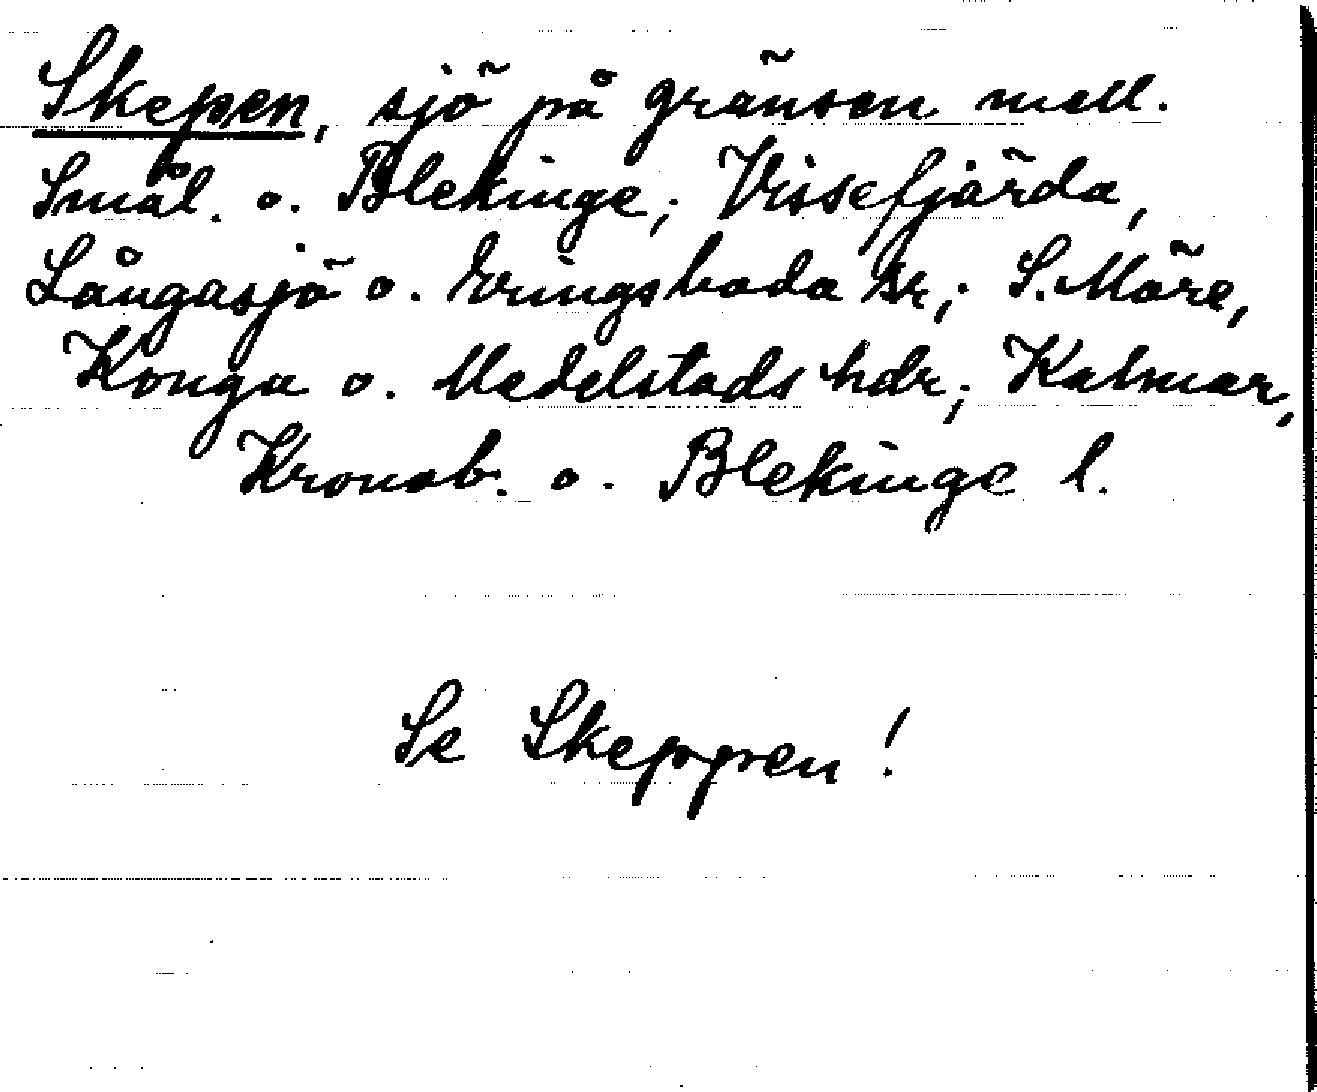 Skepen, sjö på gränsen mell.
Smål. o. Blekinge; Vissefjärda,
Långasjö o. Eringsboda snr; S. Möre,
Konga o. Medelstads hdr; Kalmar,
Kronob. o. Blekinge l.
Se Skeppen!